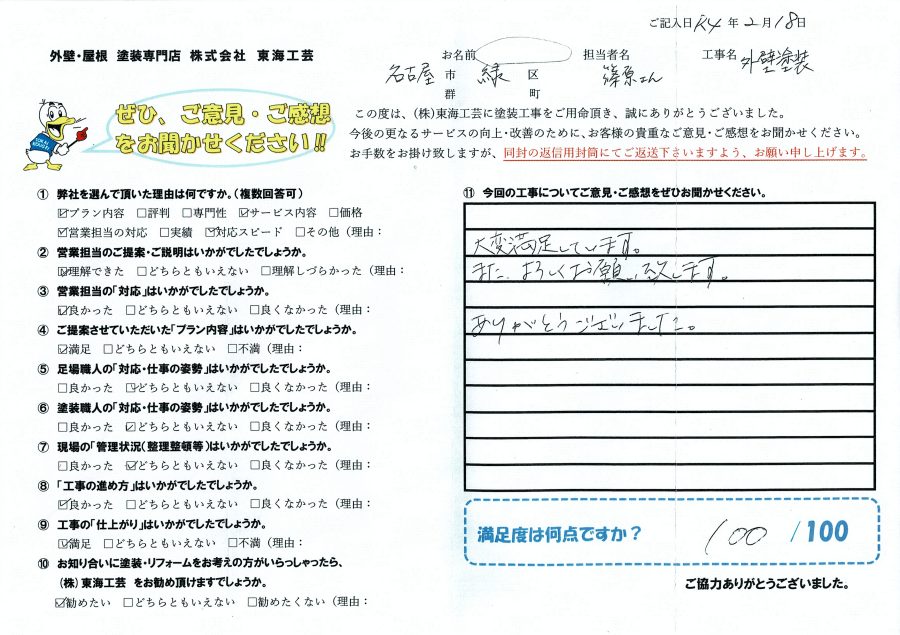 ご記入日 R4 年 2 月 18 日
外壁・屋根 塗装専門店 株式会社 東海工芸
お名前 担当者名 工事名
名古屋 市 緑 区 篠原さん 外壁塗装
群 町
ぜひ、ご意見・ご感想
をお聞かせください!!
この度は、(株)東海工芸に塗装工事をご用命頂き、誠にありがとうございました。
今後の更なるサービスの向上・改善のために、お客様の貴重なご意見・ご感想をお聞かせください。
お手数をお掛け致しますが、同封の返信用封筒にてご返送下さいますよう、お願い申し上げます。
① 弊社を選んで頂いた理由は何ですか。(複数回答可)
☑プラン内容 □評判 □専門性 ☑サービス内容 □価格
☑営業担当の対応 □実績 ☑対応スピード □その他(理由:
② 営業担当のご提案・ご説明はいかがでしたでしょうか。
☑理解できた □どちらともいえない □理解しづらかった(理由:
③ 営業担当の「対応」はいかがでしたでしょうか。
☑良かった □どちらともいえない □良くなかった(理由:
④ ご提案させていただいた「プラン内容」はいかがでしたでしょうか。
☑満足 □どちらともいえない □不満(理由:
⑤ 足場職人の「対応・仕事の姿勢」はいかがでしたでしょうか。
□良かった ☑どちらともいえない □良くなかった(理由:
⑥ 塗装職人の「対応・仕事の姿勢」はいかがでしたでしょうか。
□良かった ☑どちらともいえない □良くなかった(理由:
⑦ 現場の「管理状況(整理整頓等)はいかがでしたでしょうか。
□良かった ☑どちらともいえない □良くなかった(理由:
⑧ 「工事の進め方」はいかがでしたでしょうか。
☑良かった □どちらともいえない □良くなかった(理由:
⑨ 工事の「仕上がり」はいかがでしたでしょうか。
☑満足 □どちらともいえない □不満(理由:
⑩ お知り合いに塗装・リフォームをお考えの方がいらっしゃったら、
(株)東海工芸 をお勧め頂けますでしょうか。
☑勧めたい □どちらともいえない □勧めたくない(理由:
⑪ 今回の工事についてご意見・ご感想をぜひお聞かせください。
大変満足しています。
また、よろしくお願い致します。
ありがとうございました。
満足度は何点ですか? 100 /100
ご協力ありがとうございました。